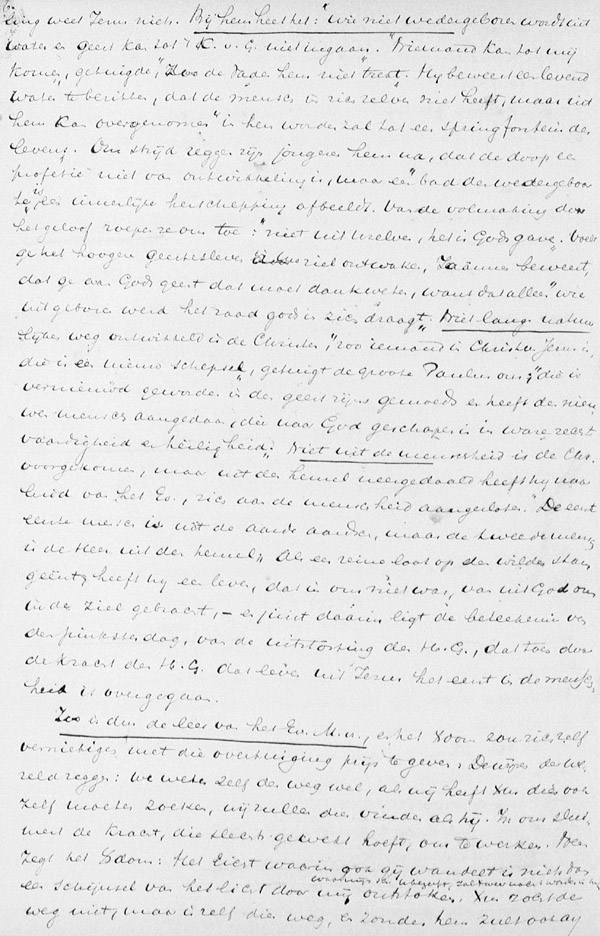 ling weet Jezus niets. Bij hem heet het: "wie niet wedergeboren wordt uit
water en Geest kan tot 't K. v. G. niet ingaan." "Niemand kan tot mij
komen", getuigde, "zoo de Vader hem niet trekt. Hy beweert levend
water te bezitten, dat de mensch in zich zelve niet heeft, maar uit
hem kan overgenomen in hem worden zal tot een springfontein des
levens". Om strijd zeggen zijn jongeren hem na, dat de doop een
profetie niet van ontwikkeling is, maar een bad der wedergeboor
te, een innerlijke herschepping afbeeldt. Van de volmaking door
het geloof roepen ze ons toe: "niet uit uzelven, het is Gods gave". Voelt
ge het hoogere geestesleven in uw ziel ontwaken, Johannes beweert,
dat ge aan Gods geest dat moet dank weten, want dat alleen "wie
uit God geboren werd het zaad gods in zich draagt". Niet langs natuur
lijken weg ontwikkeld is de Christen, "zoo iemand in Christus Jezus is,
die is een nieuw schepsel", getuigt de groote Paulus ons, "die is
vernieuwd geworden in den geest zijns gemoeds en heeft den nieu
wen mensch aangedaan, die naar God geschapen is in ware recht
vaardigheid en heiligheid." Niet uit de menschheid is de Chr.
voortgekomen, maar uit den hemel neergedaald heeft hy naar
luid van het Ev., zich aan de menschheid aangesloten. "De eerst
eerste mensch is uit de aarde aardsch, maar de tweede mensch
is de Heer uit den hemel". Als een reine loot op den wilden stam
geënt, heeft hy een leven, dat in ons niet was, van uit God ons
in de ziel gebracht, – en juist daarin ligt de beteekenis van
den pinksterdag, van de uitstorting des H. G., dat toen door
de kracht des H. G. dat leven uit Jezus het eerst in de mensch
heid is overgegaan.
Zoo is dus de leer van het Ev. M. H., en het Xdom zou zich zelf
vernietigen met die overtuiging prijs te geven. De wijzen der we
reld zeggen: we weten zelf den weg wel, als wij heeft Xus dien ook
zelf moeten zoeken, wij zullen dien vinden als hij. In ons sluimert
de kracht, die slechts gewekt hoeft, om te werken. Neen
zegt het Xdom: Het licht waarin gij wandelt is niets dan
een schijnsel van het licht door mij ontstoken. Xus zocht den
weg niet, maar is zelf die weg, en zonder hem zult ook gij